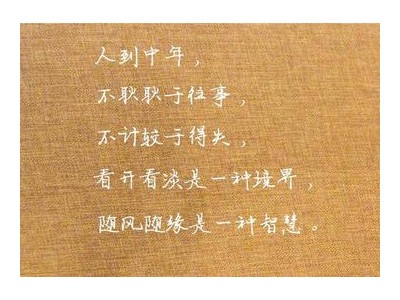 人到中年，
不耿耿于往事，
不计较于得失，
看开看淡是一种境界，
随风随缘是一种智慧。